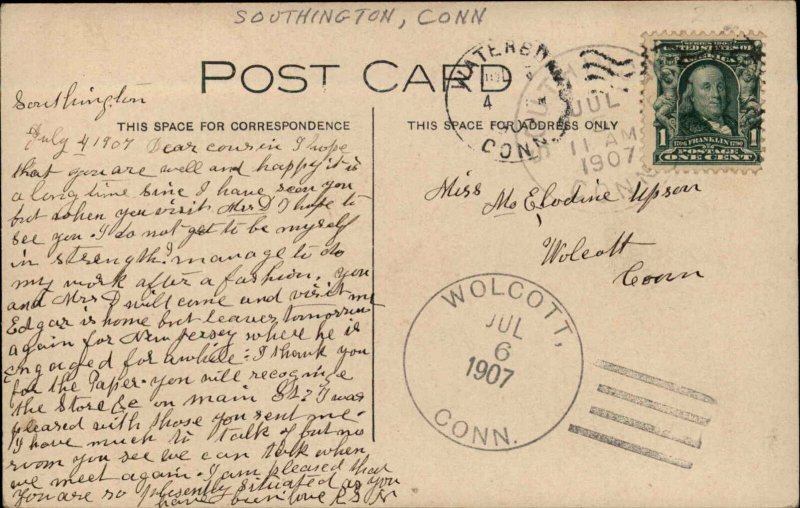 SOUTHINGTON, CONN
POST CARD
THIS SPACE FOR CORRESPONDENCE
THIS SPACE FOR ADDRESS ONLY
Southington
July 4 1907 Dear cousin I hope
that you are well and happy it is
a long time sine I have seen you
but when you visit Mrs D I hope to
see you. I do not get to be myself
in strength. I manage to do
my work after a fashion. You
and Mrs D will come and visit me
Edgar is home but leaves tomorrow
again for New Jersey where he is
engaged for awhile. I thank you
for the Paper. you will recognize
the Store &c on main St. I was
pleased with those you sent me.
I have much to talk of but no
room you see we can talk when
we meet again. I am pleased that
You are so plesently situated as you
have been love
WATERBURY
JUL
4
CONN.
SOUTH
JUL
11 AM
1907
CONN
SERIES 1902
UNITED STATES OF AMERICA
1 1
1706 FRANKLIN 1790
POSTAGE
ONE CENT
Miss Elodine Upson
Wolcott
Conn
WOLCOTT,
JUL
6
1907
CONN.